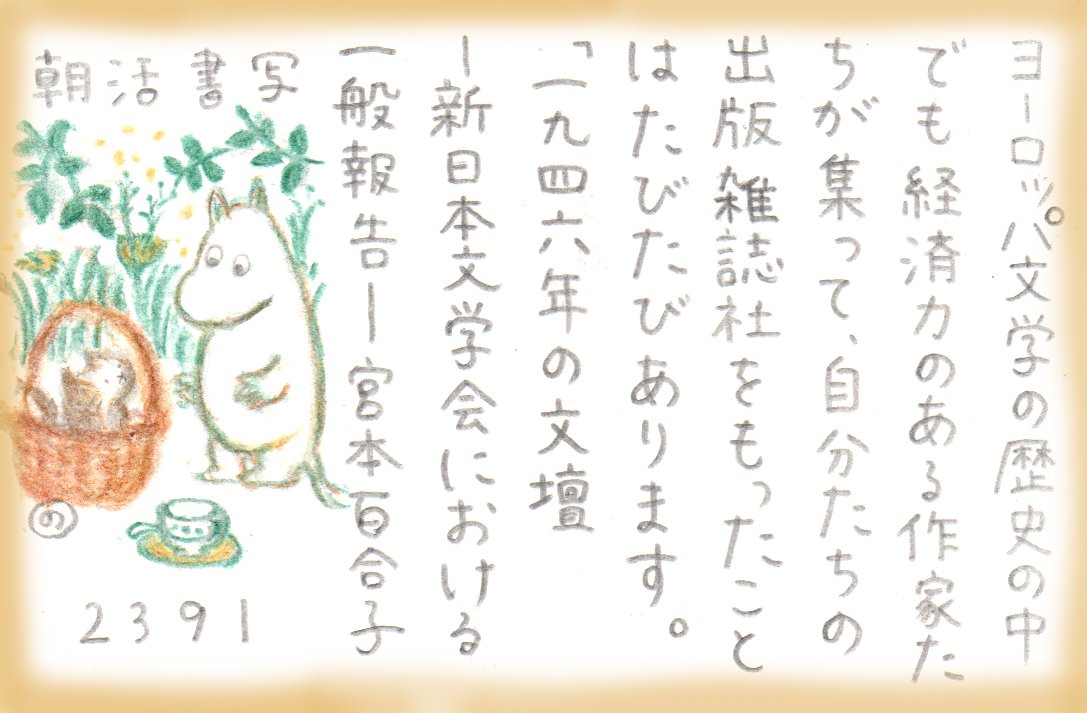 ヨーロッパ文学の歴史の中
でも経済力のある作家た
ちが集って、自分たちの
出版雑誌社をもったこと
はたびたびあります。
「一九四六年の文壇
ー新日本文学会における
一般報告ー宮本百合子
朝活書写
の
2391